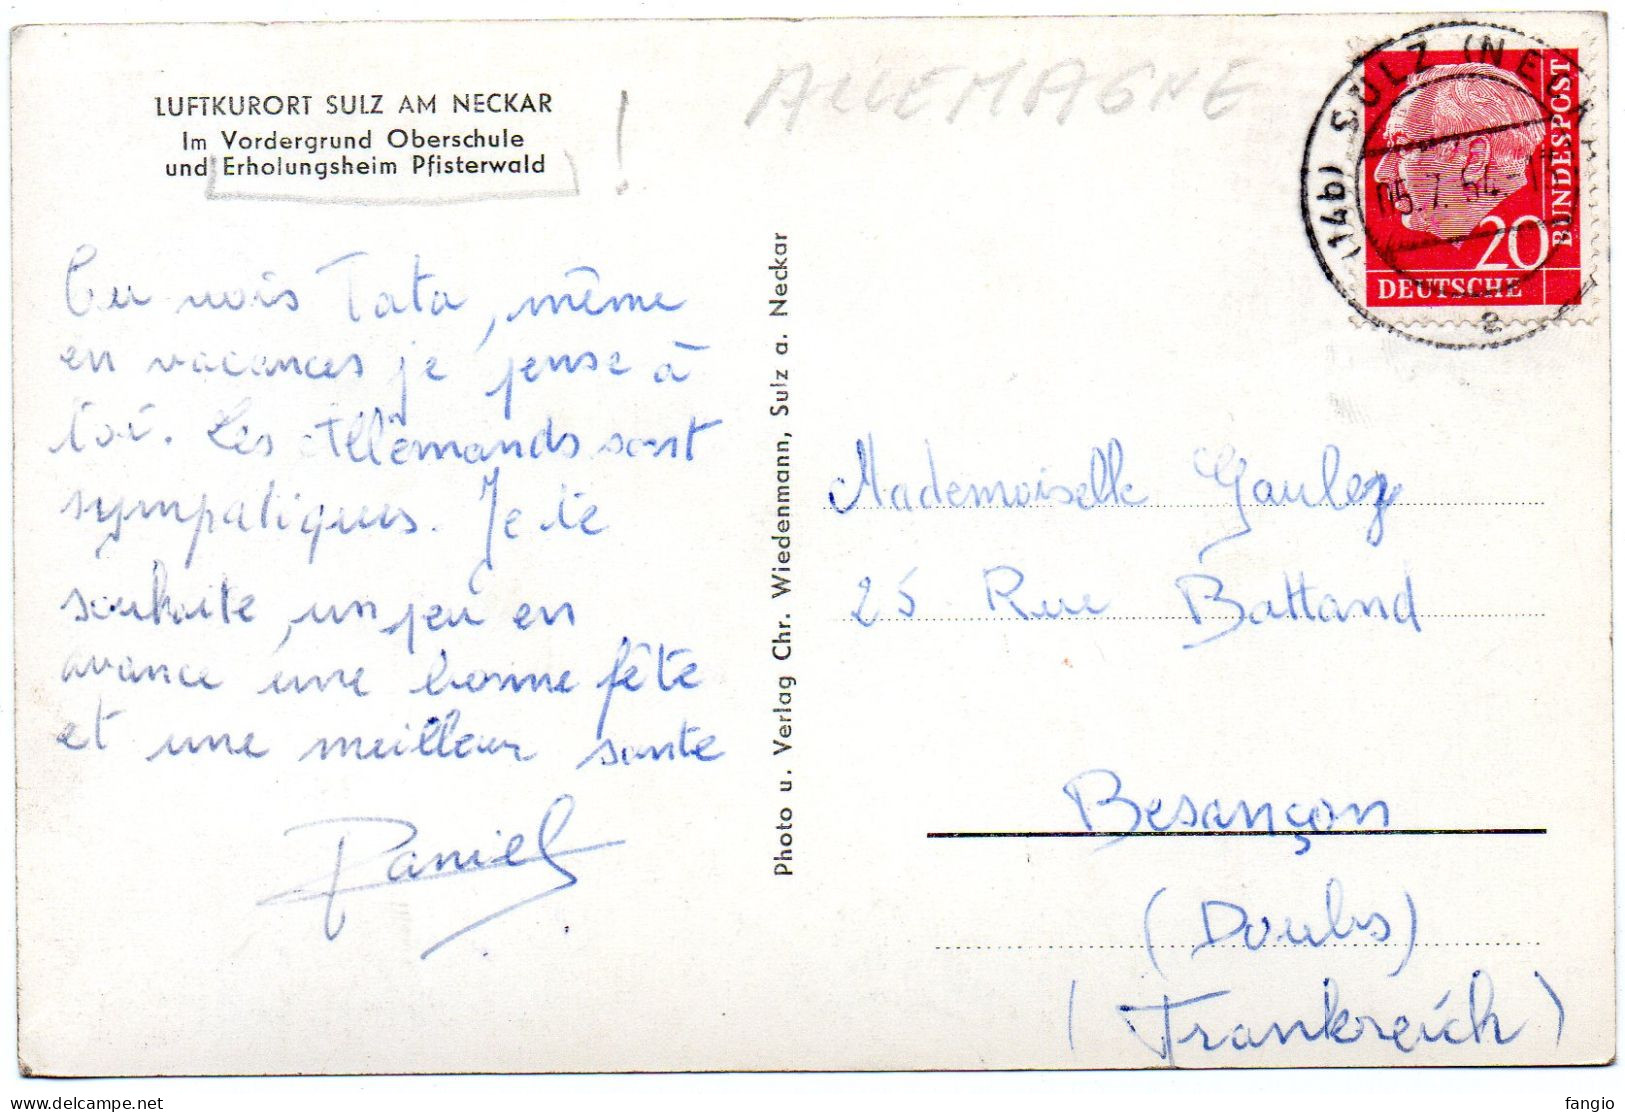 LUFTKURORT SULZ AM NECKAR
Im Vordergrund Oberschule
und Erholungsheim Pfisterwald
!
ALLEMAGNE
Tu vois Tata, même
en vacances je pense à
toi. Les Allemands sont
sympatiques. Je te
souhaite, un peu en
avance une bonne fête
et une meilleur santé
Daniel
Photo u. Verlag Chr. Wiedenmann, Sulz a. Neckar
(14b) SULZ (NECKAR)
05.7.54.-17
a
20
DEUTSCHE
BUNDESPOST
Mademoiselle Gauley
25 Rue Battand
Besançon
(Doubs)
(Frankreich)
delcampe.net
fangio